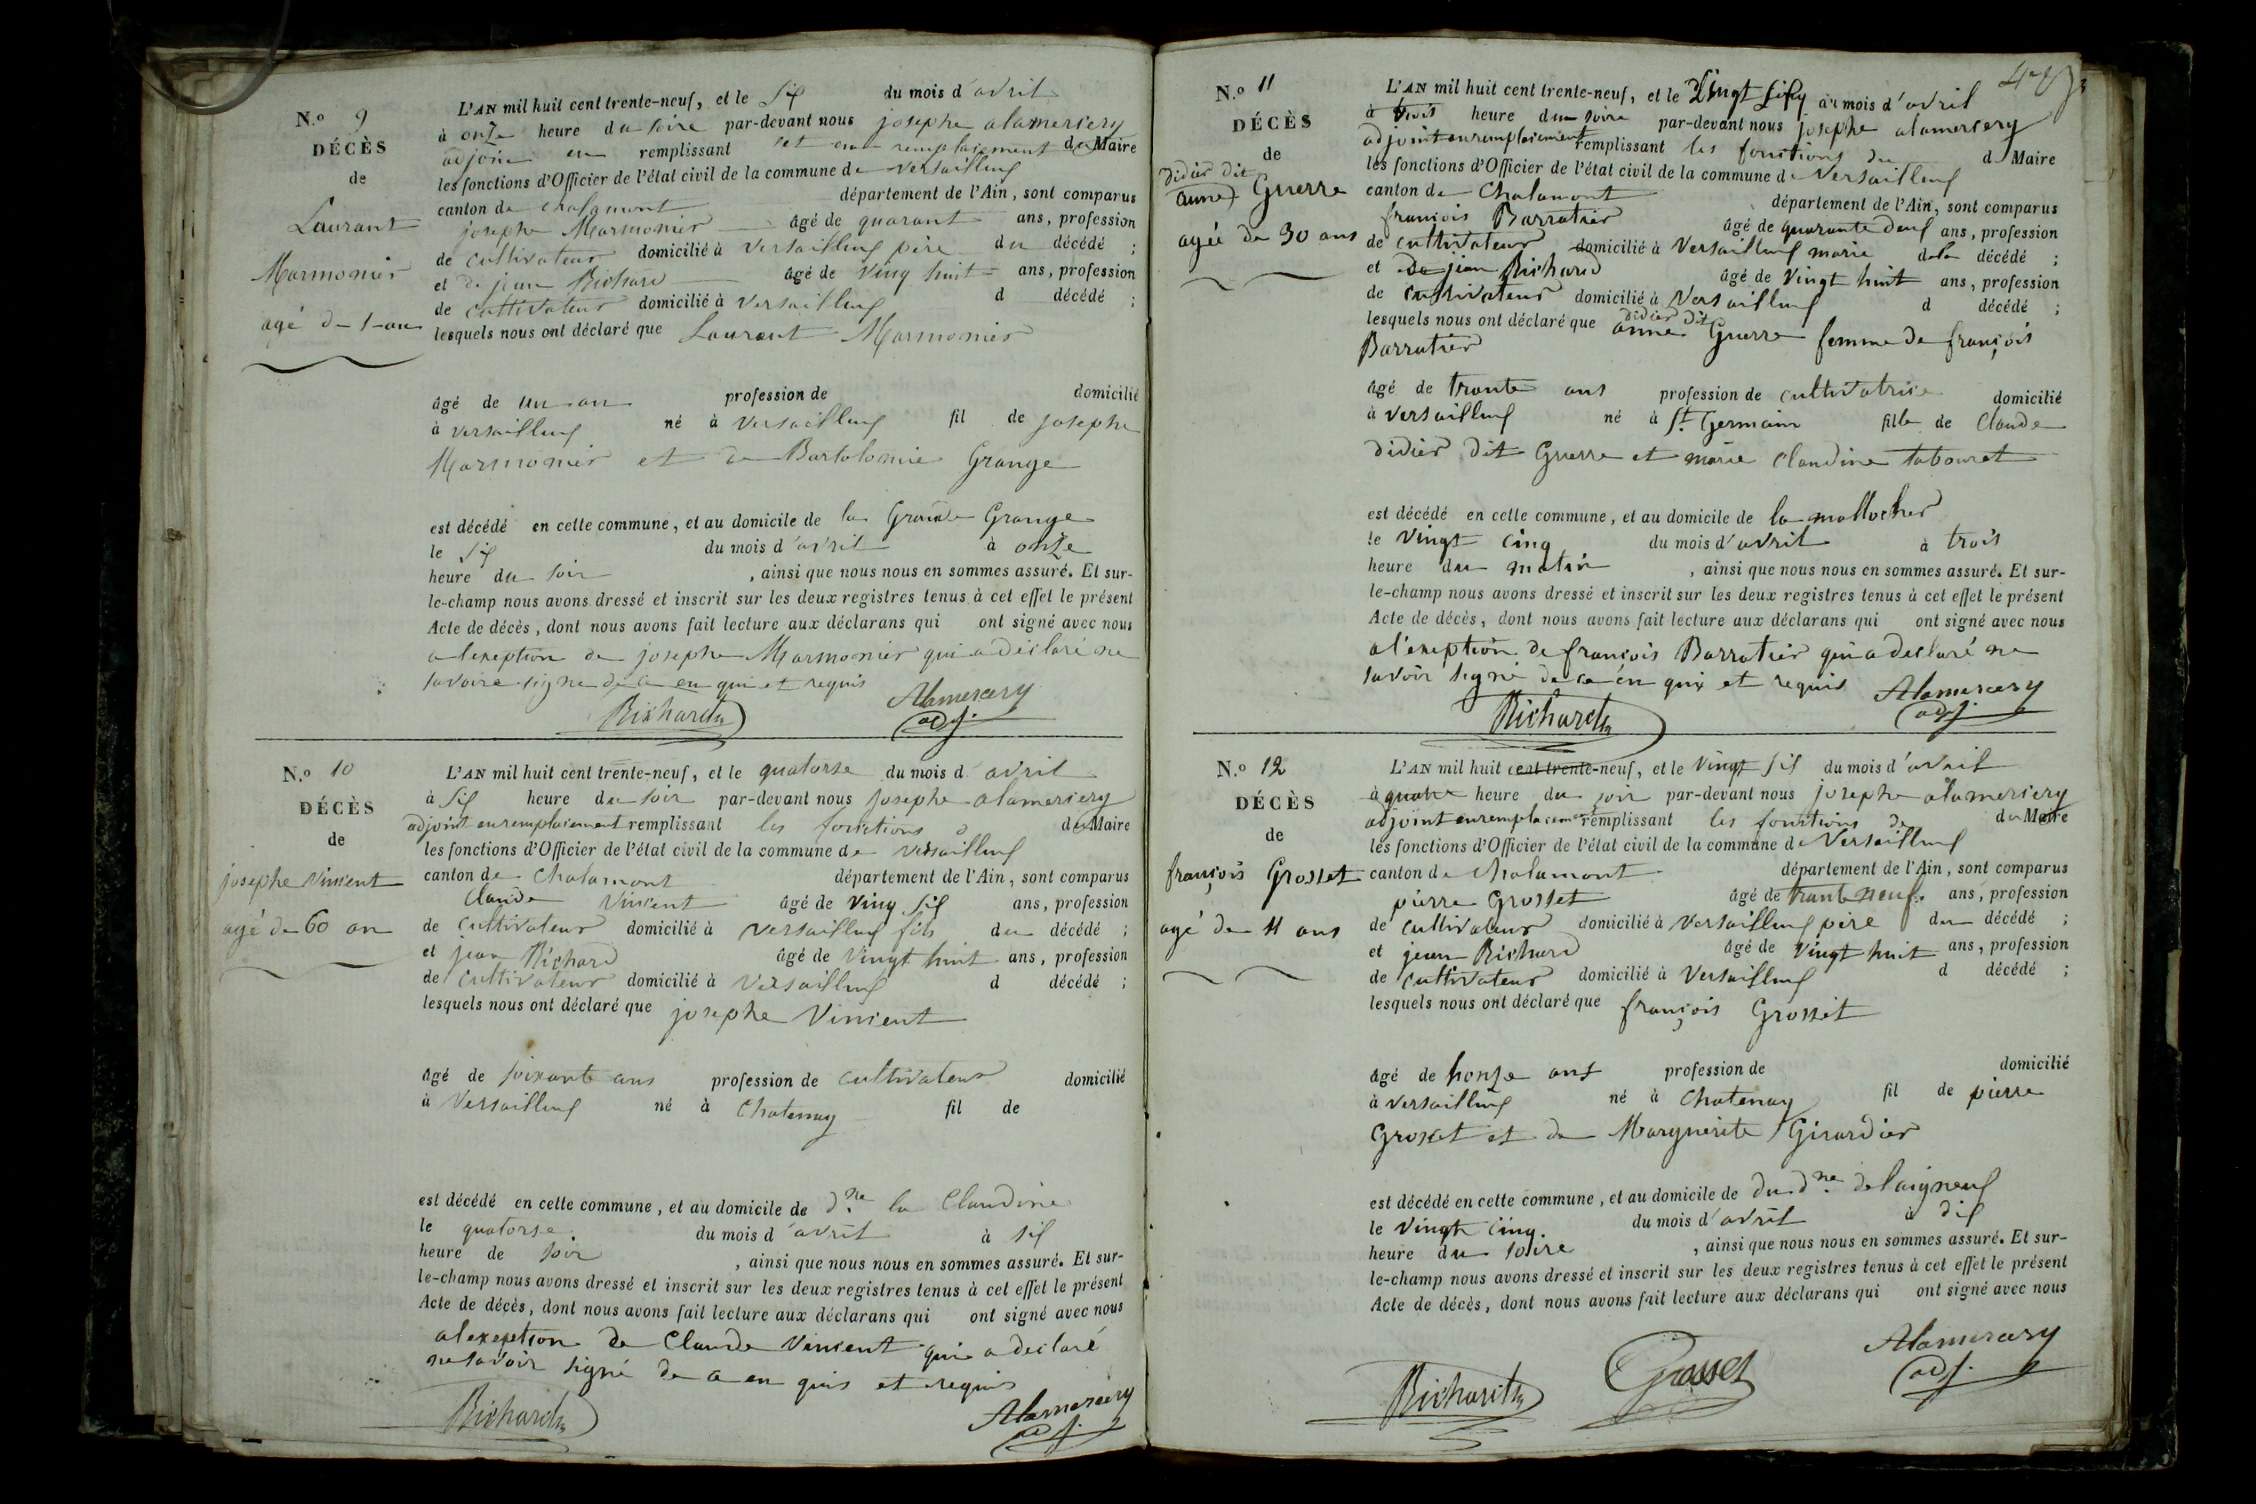 N.o 9
DÉCÈS
de
Laurant
Marmonier
agé de 1 an
L'AN mil huit cent trente-neuf, et le six du mois d'avril
à onze heure du soire par-devant nous josephe alamercery
adjoin en remplissant et en remplaiement du Maire
les fonctions d'Officier de l'état civil de la commune de versailleux
canton de chalamont département de l'Ain, sont comparus
josephe Marmonier âgé de quarant ans, profession
de cultivateur domicilié à versailleux père du décédé ;
et de jean Richard âgé de vingt huit ans, profession
de cultivateur domicilié à versailleux d décédé ;
lesquels nous ont déclaré que Laurant Marmonier
âgé de un an profession de domicilié
à versailleux né à versailleux fil de josephe
Marmonier et de Bartolomie Grange
est décédé en cette commune, et au domicile de la Grande Grange
le six du mois d'avril à onze
heure du soir , ainsi que nous nous en sommes assuré. Et sur-
le-champ nous avons dressé et inscrit sur les deux registres tenus à cet effet le présent
Acte de décès, dont nous avons fait lecture aux déclarans qui ont signé avec nous
a lexeption de josephe Marmonier qui a déclaré ne
savoire signe de ce en qui et requis
Richard Alamercery
adj.
N.o 10
DÉCÈS
de
josephe Vincent
agé de 60 an
L'AN mil huit cent trente-neuf, et le quatorse du mois d'avril
à six heure du soir par-devant nous josephe alamercery
adjoint en remplaiement remplissant les fonctions d du Maire
les fonctions d'Officier de l'état civil de la commune de versailleux
canton de Chalamont département de l'Ain, sont comparus
Claude Vincent âgé de ving six ans, profession
de cultivateur domicilié à versailleux fils du décédé ;
et jean Richard âgé de vingt huit ans, profession
de cultivateur domicilié à versailleux d décédé ;
lesquels nous ont déclaré que josephe Vincent
âgé de soixante ans profession de cultivateur domicilié
à Versailleux né à Chatenay fil de
est décédé en cette commune, et au domicile de d.ne la Claudine
le quatorse du mois d'avril à six
heure de soir , ainsi que nous nous en sommes assuré. Et sur-
le-champ nous avons dressé et inscrit sur les deux registres tenus à cet effet le présent
Acte de décès, dont nous avons fait lecture aux déclarans qui ont signé avec nous
alexeption de Claude Vincent qui a déclaré
ne savoir signé de ce en quis et requis
Richard Alamercery
adj.
N.o 11
DÉCÈS
de
didier dit
anne Guerre
agée de 30 ans
L'AN mil huit cent trente-neuf, et le Vingt six du mois d'avril
à trois heure du soire par-devant nous josephe alamercery
adjoint en remplaiement remplissant les fonctions du d Maire
les fonctions d'Officier de l'état civil de la commune de Versailleux
canton de Chalamont département de l'Ain, sont comparus
francois Barratier âgé de quarante deux ans, profession
de cultivateur domicilié à Versailleux marie dela décédé ;
et de jean Richard âgé de vingt huit ans, profession
de cultivateur domicilié à Versailleux d décédé ;
lesquels nous ont déclaré que anne didier dit Guerre femme de françois
Barratier
âgé de trante ans profession de cultivatrise domicilié
à versailleux né à St. Germain fille de Claude
didier dit Guerre et marie Claudine tabouret
est décédé en cette commune, et au domicile de la mallocher
le vingt cinq du mois d'avril à trois
heure du matin , ainsi que nous nous en sommes assuré. Et sur-
le-champ nous avons dressé et inscrit sur les deux registres tenus à cet effet le présent
Acte de décès, dont nous avons fait lecture aux déclarans qui ont signé avec nous
a l'exeption de françois Barratier qui a declaré ne
savoir signé de ce en qui et requis
Richard Alamercery
adj.
N.o 12
DÉCÈS
de
françois Grosset
agé de 11 ans
L'AN mil huit cent trente-neuf, et le vingt six du mois d'avril
à quatre heure du soir par-devant nous josephe alamercery
adjoint en remplacement remplissant les fonctions de du Maire
les fonctions d'Officier de l'état civil de la commune de Versailleux
canton de Chalamont département de l'Ain, sont comparus
pierre Grosset âgé de trante neuf. ans, profession
de cultivateur domicilié à versailleux père du décédé ;
et jean Richard âgé de vingt huit ans, profession
de cultivateur domicilié à Versailleux d décédé ;
lesquels nous ont déclaré que françois Grosset
âgé de honze ans profession de domicilié
à versailleux né à Chatenay fil de pierre
Grosset et de Marguerite Girardier
est décédé en cette commune, et au domicile de du d.ne delaigneux
le vingt cinq du mois d'avril à dix
heure du soire , ainsi que nous nous en sommes assuré. Et sur-
le-champ nous avons dressé et inscrit sur les deux registres tenus à cet effet le présent
Acte de décès, dont nous avons fait lecture aux déclarans qui ont signé avec nous
Richard Grosset Alamercery
adj.